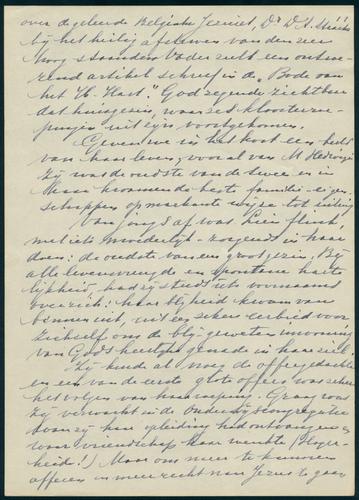 over de geleerde Belgische Jezuiet, Dr D. A. Stracke
bij het heilig afsterven van den zeer
hoog staanden Vader zulk een ontroe-
rend artikel schreef in de „Bode van
het H. Hart”. God zegende zichtbaar
dat huisgezin, waar 3 kloosterroe-
pingen uit zijn voortgekomen.
Geven we in het kort een beeld
van haar leven, vooral van M. Hedwige
Zij was de oudste van de twee en in
Haar kwamen de beste familie-eigen-
schappen op markante wijze tot uiting
Van jongs af was Lien flink,
met iets moederlijk-zorgends in haar
doen: de oudste van een groot gezin. Bij
alle levensvreugde en spontane harte
lijkheid, had zij steeds iets voornaams
over zich: haar blijheid kwam van
binnen uit, uit een zekere eerbied voor
zichzelf om de blij geweten inwoning
van Gods heerlijke genade in haar ziel.
Zij kende al vroeg de offergedachte
en een van de eerste grote offers was zeker
het volgen van haar roeping. Graag was
zij verwacht in de Onderwijscongregatie
waar zij haar opleiding had ontvangen en
waar vriendschap haar wenkte
Maar om meer te kunnen
offeren en meer recht naar Jezus te gaan